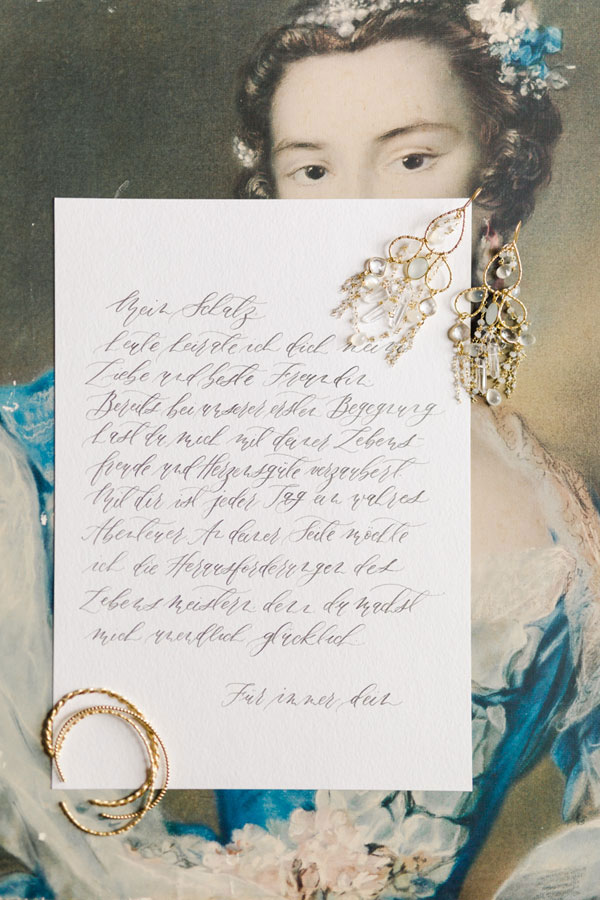 Mein Schatz
heute heirate ich dich meine
Liebe und beste Freundin
Bereits bei unserer ersten Begegnung
hast du mich mit deiner Lebens-
freude und Herzensgüte verzaubert
Mit dir ist jeder Tag ein wahres
Abenteuer An deiner Seite möchte
ich die Herausforderungen des
Lebens meistern denn du machst
mich unendlich glücklich
Für immer dein